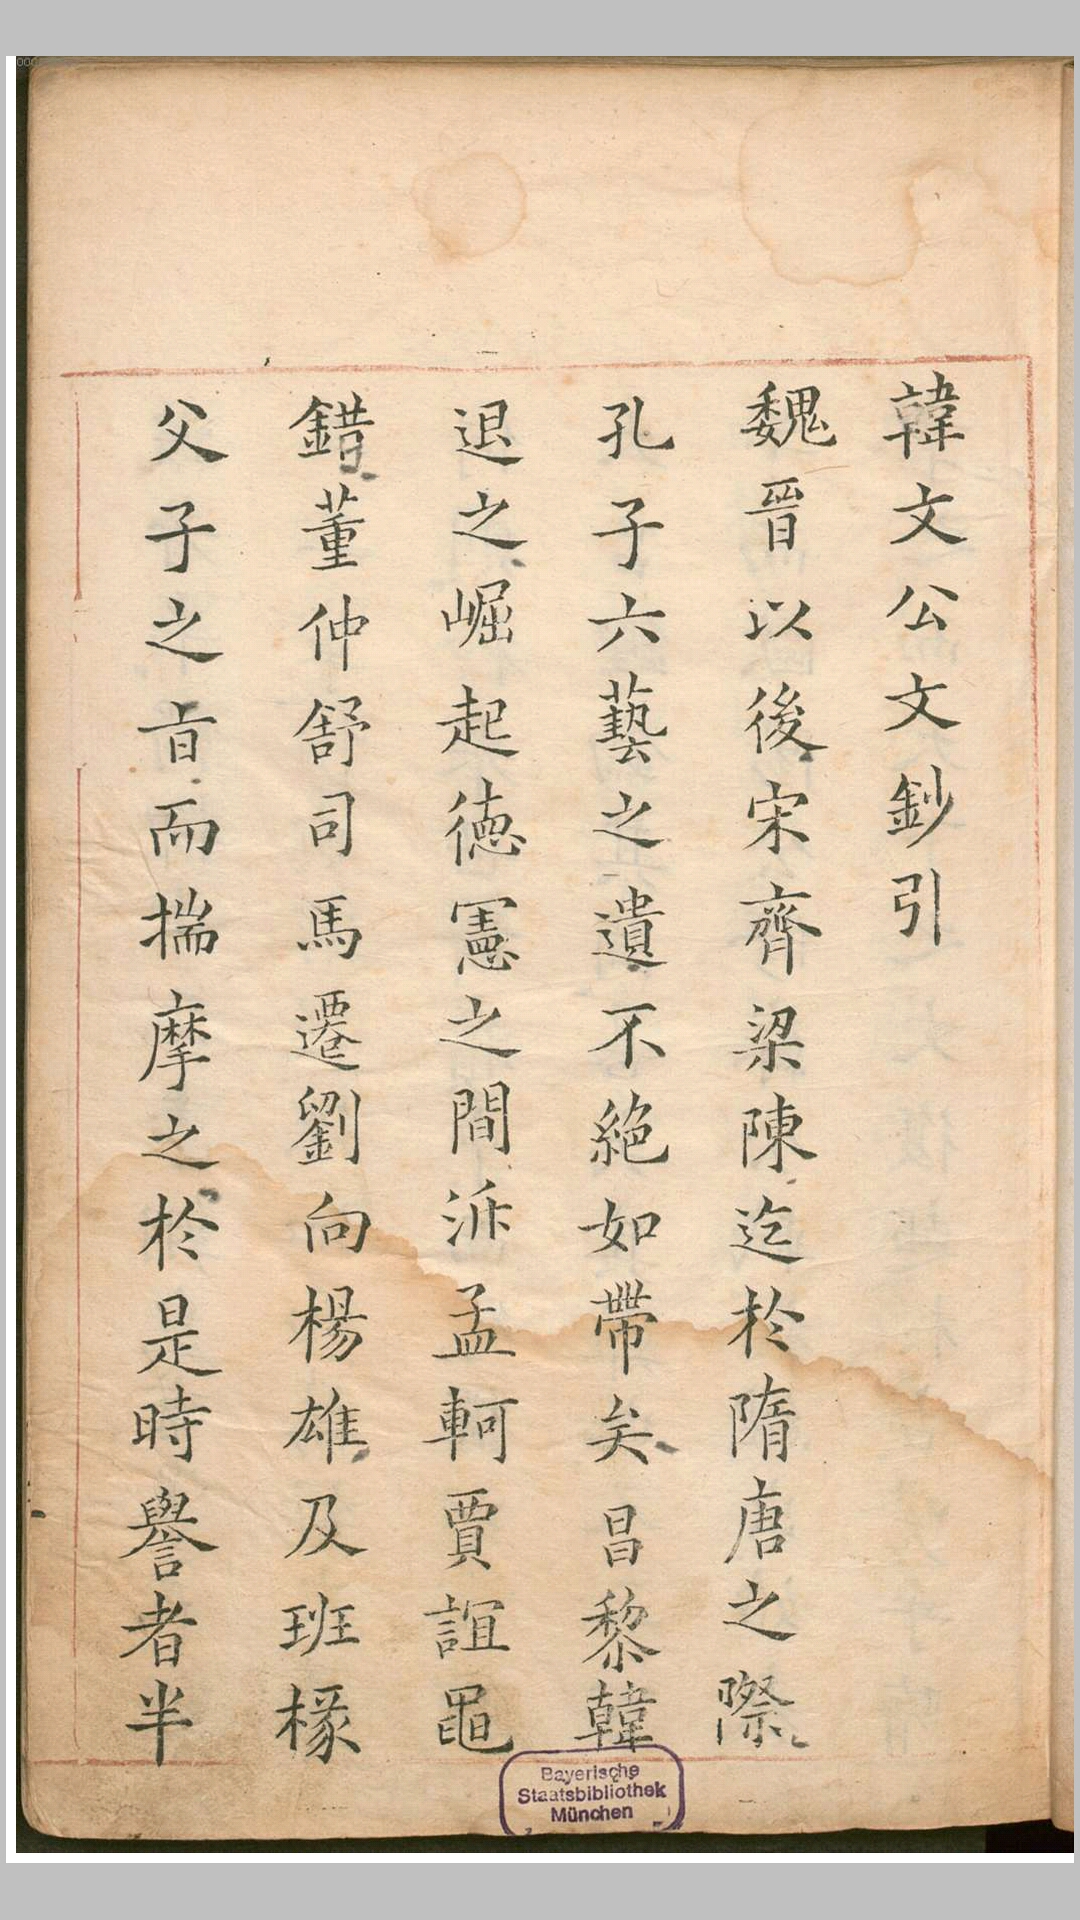 韓文公文鈔引
魏晉以後宋齊梁陳迄於隋唐之際
孔子六藝之遺不絕如帶矣昌黎韓
退之崛起德憲之間泝孟軻賈誼鼂
錯董仲舒司馬遷劉向楊雄及班掾
父子之旨而揣摩之於是時譽者半
Bayerische
Staatsbibliothek
München